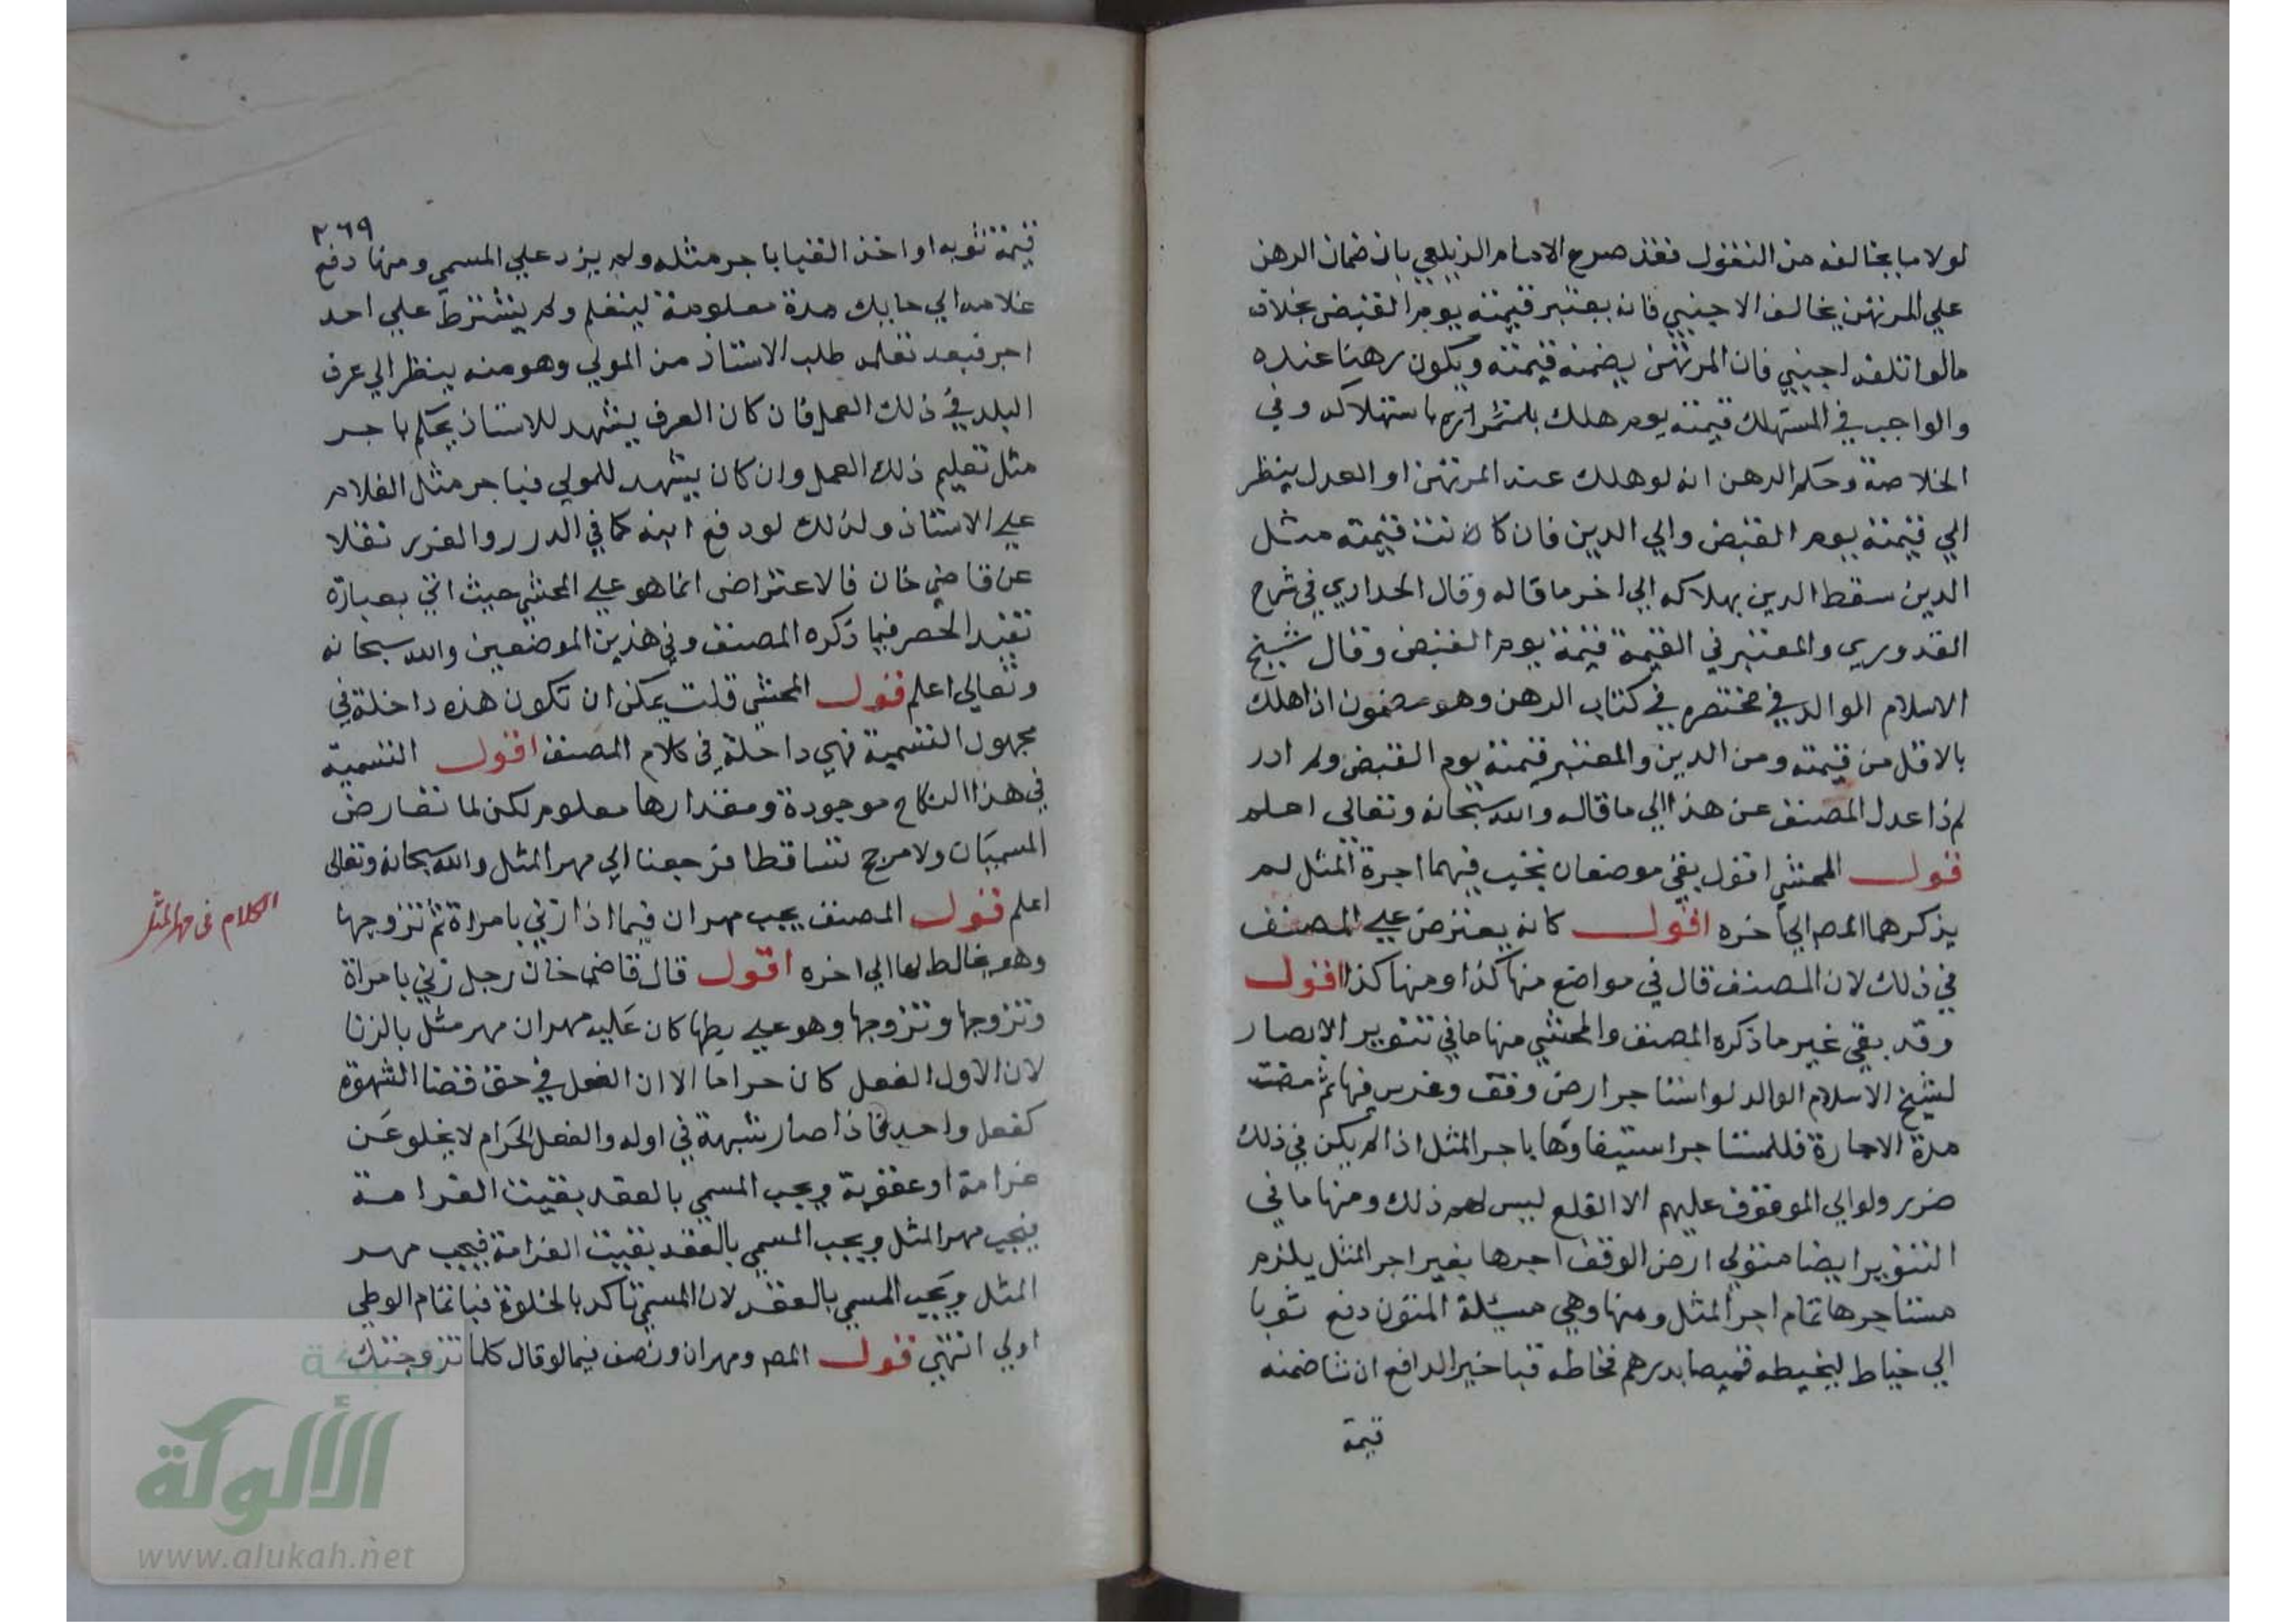 لولا ما يخالفه من النقول فقد صرح الامام الزيلعي بان ضمان الرهن
علي المرتهن يخالف الاجنبي فانه يعتبر قيمته يوم القبض بخلاف
مالو اتلفه اجنبي فان المرتهن يضمنه قيمته ويكون رهنا عنده
والواجب في المستهلك قيمته يوم هلك باستهلاكه وفي
الخلاصة وحكم الرهن انه لو هلك عند المرتهن او العدل ينظر
الي قيمته يوم القبض والي الدين فان كانت قيمته مثل
الدين سقط الدين بهلاكه الي اخر ما قاله وقال الحدادي في شرح
القدوري والمعتبر في القيمة قيمة يوم القبض وقال شيخ
الاسلام الوالد في مختصره في كتاب الرهن وهو مضمون اذا هلك
بالاقل من قيمته ومن الدين والمعتبر قيمته يوم القبض ولم ادر
لم ذا عدل المصنف عن هذا الي ما قاله والله سبحانه وتعالي اعلم
قول المحشي اقول بقي موضعان تجب فيهما اجرة المثل لم
يذكرهما المص الي اخره اقول كانه يعترض علي المصنف
في ذلك لان المصنف قال في مواضع منها كذا ومنها كذا اقول
وقد بقي غير ما ذكره المصنف والمحشي منها ما في تنوير الابصار
لشيخ الاسلام الوالد لو استاجر ارض وقف وغرس فيها ثم مضت
مدة الاجارة فللمستاجر استيفاوها باجر المثل اذا لم يكن في ذلك
ضرر ولو ابي الموقوف عليهم الا القلع ليس لهم ذلك ومنها ما في
التنوير ايضا متولي ارض الوقف اجرها بغير اجر المثل يلزم
مستاجرها تمام اجر المثل ومنها وهي مسئلة المتون دفع ثوبا
الي خياط ليخيطه قميصا بدرهم فخاطه قبا خير الدافع ان شا ضمنه
قيمة
٢٦٩
قيمة ثوبه او اخذ القبا باجر مثله ولم يزد علي المسمي ومنها دفع
غلامه الي حايك مدة معلومة ليتعلم ولم يشترط علي احد
اجر فبعد تعلمه طلب الاستاذ من المولي وهو منه ينظر الي عرف
البلد في ذلك العمل فان كان العرف يشهد للاستاذ يحكم باجر
مثل تعليم ذلك العمل وان كان يشهد للمولي فباجر مثل الغلام
علي الاستاذ ولذلك لو دفع ابنه كما في الدرر والغرر نقلا
عن قاضي خان فالاعتراض انما هو علي المحشي حيث اتي بعبارة
تفيد الحصر فيما ذكره المصنف وفي هذين الموضعين والله سبحانه
وتعالي اعلم قول المحشي قلت يمكن ان تكون هذه داخلة في
مجهول التسمية فهي داخلة في كلام المصنف اقول التسمية
في هذا النكاح موجودة ومقدارها معلوم لكن لما تعارض
المسميان ولا مرجح تساقطا فرجعنا الي مهر المثل والله سبحانه وتعالي
اعلم قول المصنف يجب مهران فيما اذا زني بامراة ثم تزوجها
وهو يخالط لها الي اخره اقول قال قاضي خان رجل زني بامراة
وتزوجها وتزوجها وهو علي بطنها كان عليه مهران مهر مثل بالزنا
لان الاول الفعل كان حراما الا ان الفعل في حق قضا الشهوة
كفعل واحد فاذا صار شبهة في اوله والفعل الحرام لا يخلو عن
غرامة او عقوبة ويجب المسمي بالعقد بقيت الغرامة
فيجب مهر المثل ويجب المسمي بالعقد بقيت الغرامة فيجب مهر
المثل ويجب المسمي بالعقد لان المسمي تاكد بالخلوة فباتمام الوطي
اولي انتهي قول المص ومهران ونصف فيما لو قال كلما تزوجتك
الكلام في مهر المثل
شبكة
الألوكة
www.alukah.net